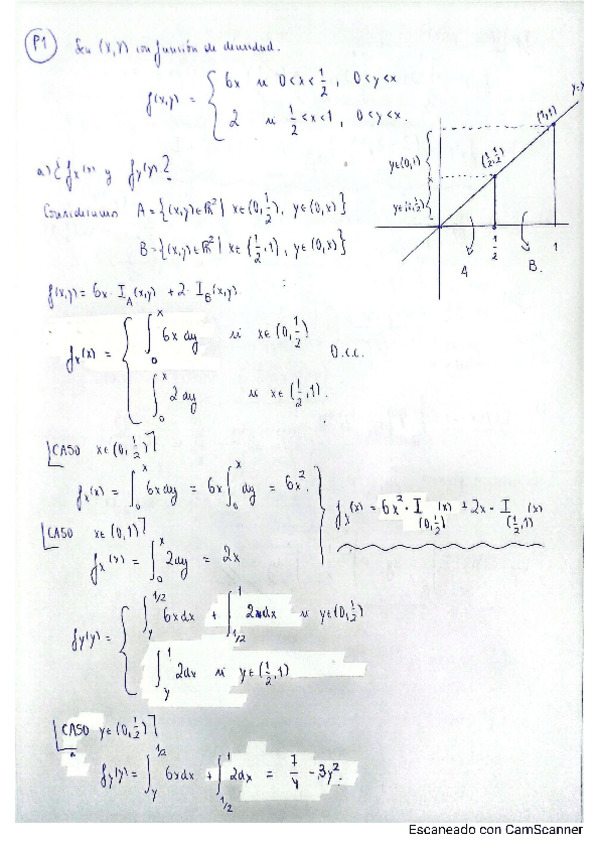 P1 Sea (X,Y) con función de densidad.
f(x,y) = { 6x si 0<x<1/2, 0<y<x
2 si 1/2<x<1, 0<y<x.
y=x
(1,1)
y∈(0,1)
(1/2,1/2)
y∈(0,1/2)
1/2
1
A
B.
a) ¿f_X(x) y f_Y(y)?
Consideramos A = {(x,y)∈ℝ² | x∈(0,1/2), y∈(0,x)}
B = {(x,y)∈ℝ² | x∈(1/2,1), y∈(0,x)}
f(x,y) = 6x · I_A(x,y) + 2 · I_B(x,y)
f_X(x) = { ∫_0^x 6x dy si x∈(0,1/2)
0.c.c.
∫_0^x 2dy si x∈(1/2,1).
CASO x∈(0,1/2)
f_X(x) = ∫_0^x 6x dy = 6x ∫_0^x dy = 6x²
f_X(x) = 6x² · I_(0,1/2)(x) + 2x · I_(1/2,1)(x)
CASO x∈(0,1)
f_X(x) = ∫_0^x 2dy = 2x
f_Y(y) = { ∫_y^{1/2} 6x dx + ∫_{1/2}^1 2dx si y∈(0,1/2)
∫_y^1 2dx si y∈(1/2,1)
CASO y∈(0,1/2)
f_Y(y) = ∫_y^{1/2} 6x dx + ∫_{1/2}^1 2dx = 7/4 - 3y².
Escaneado con CamScanner